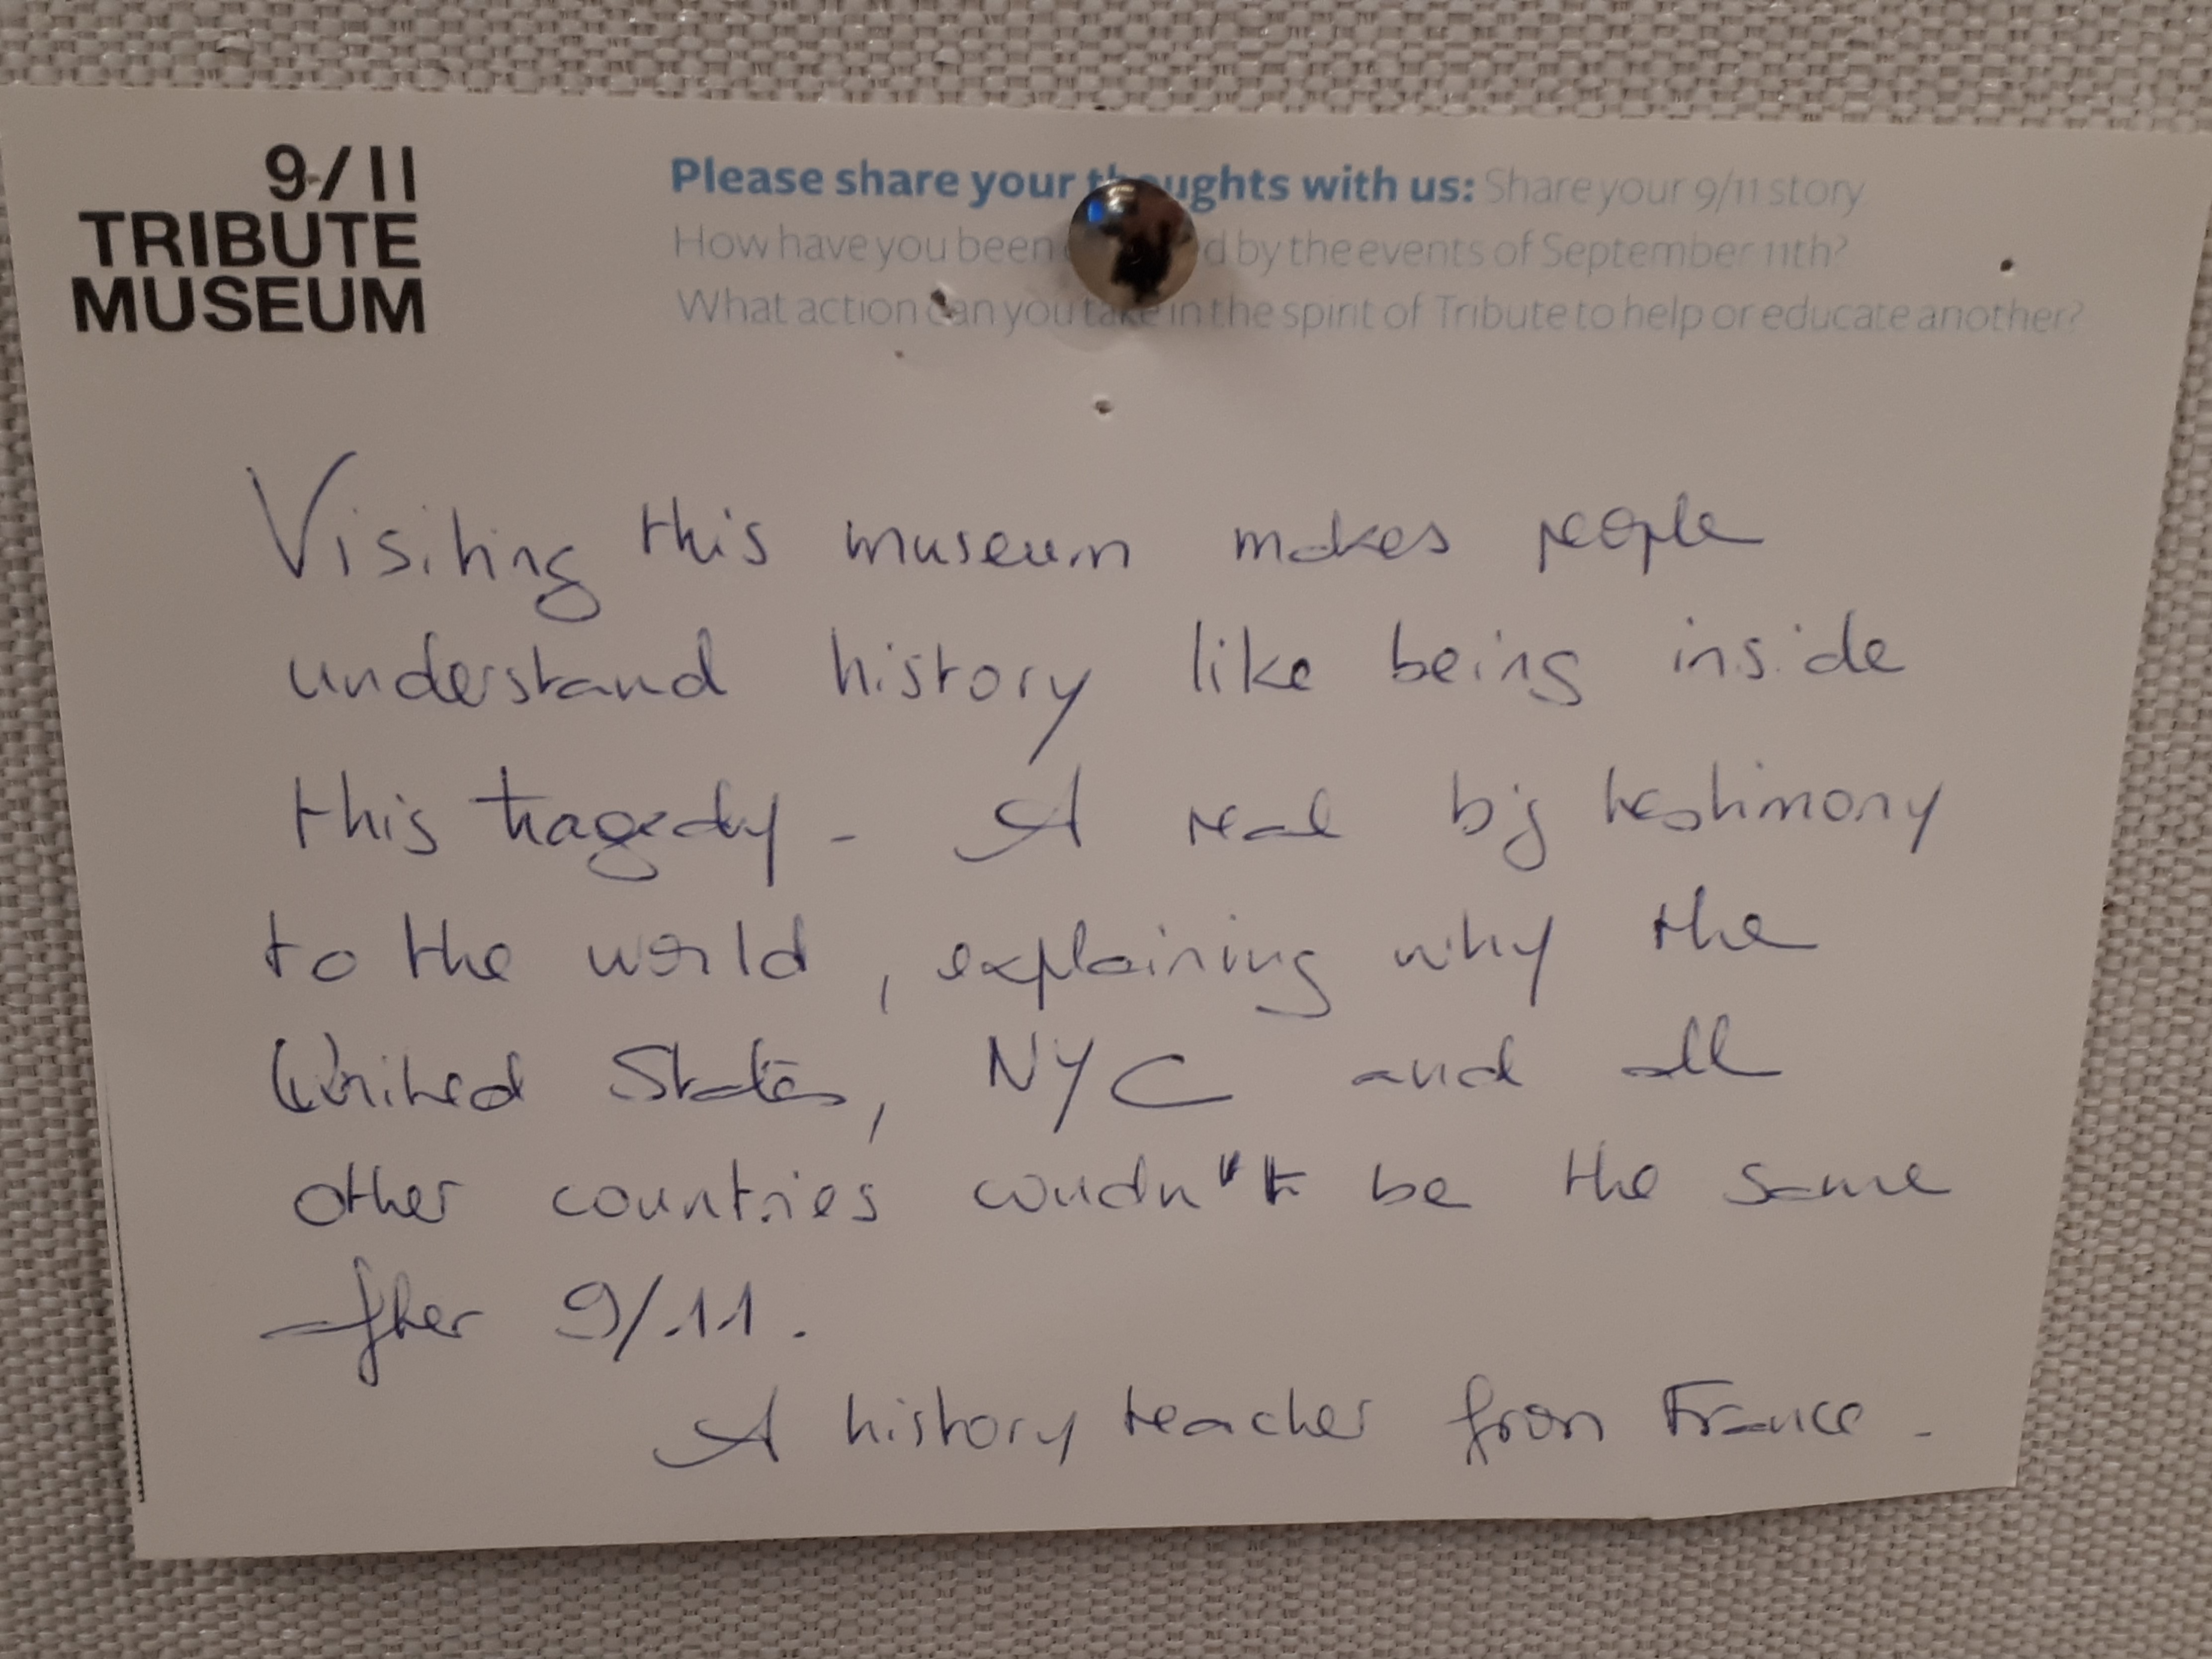 9/11
TRIBUTE
MUSEUM
Please share your thoughts with us: Share your 9/11 story
How have you been d by the events of September 11th?
What action can you take in the spirit of Tribute to help or educate another?
Visiting this museum makes people
understand history like being inside
this tragedy - A real big testimony
to the world, explaining why the
United States, NYC and all
other countries woudn't be the same
after 9/11.
A history teacher from France -